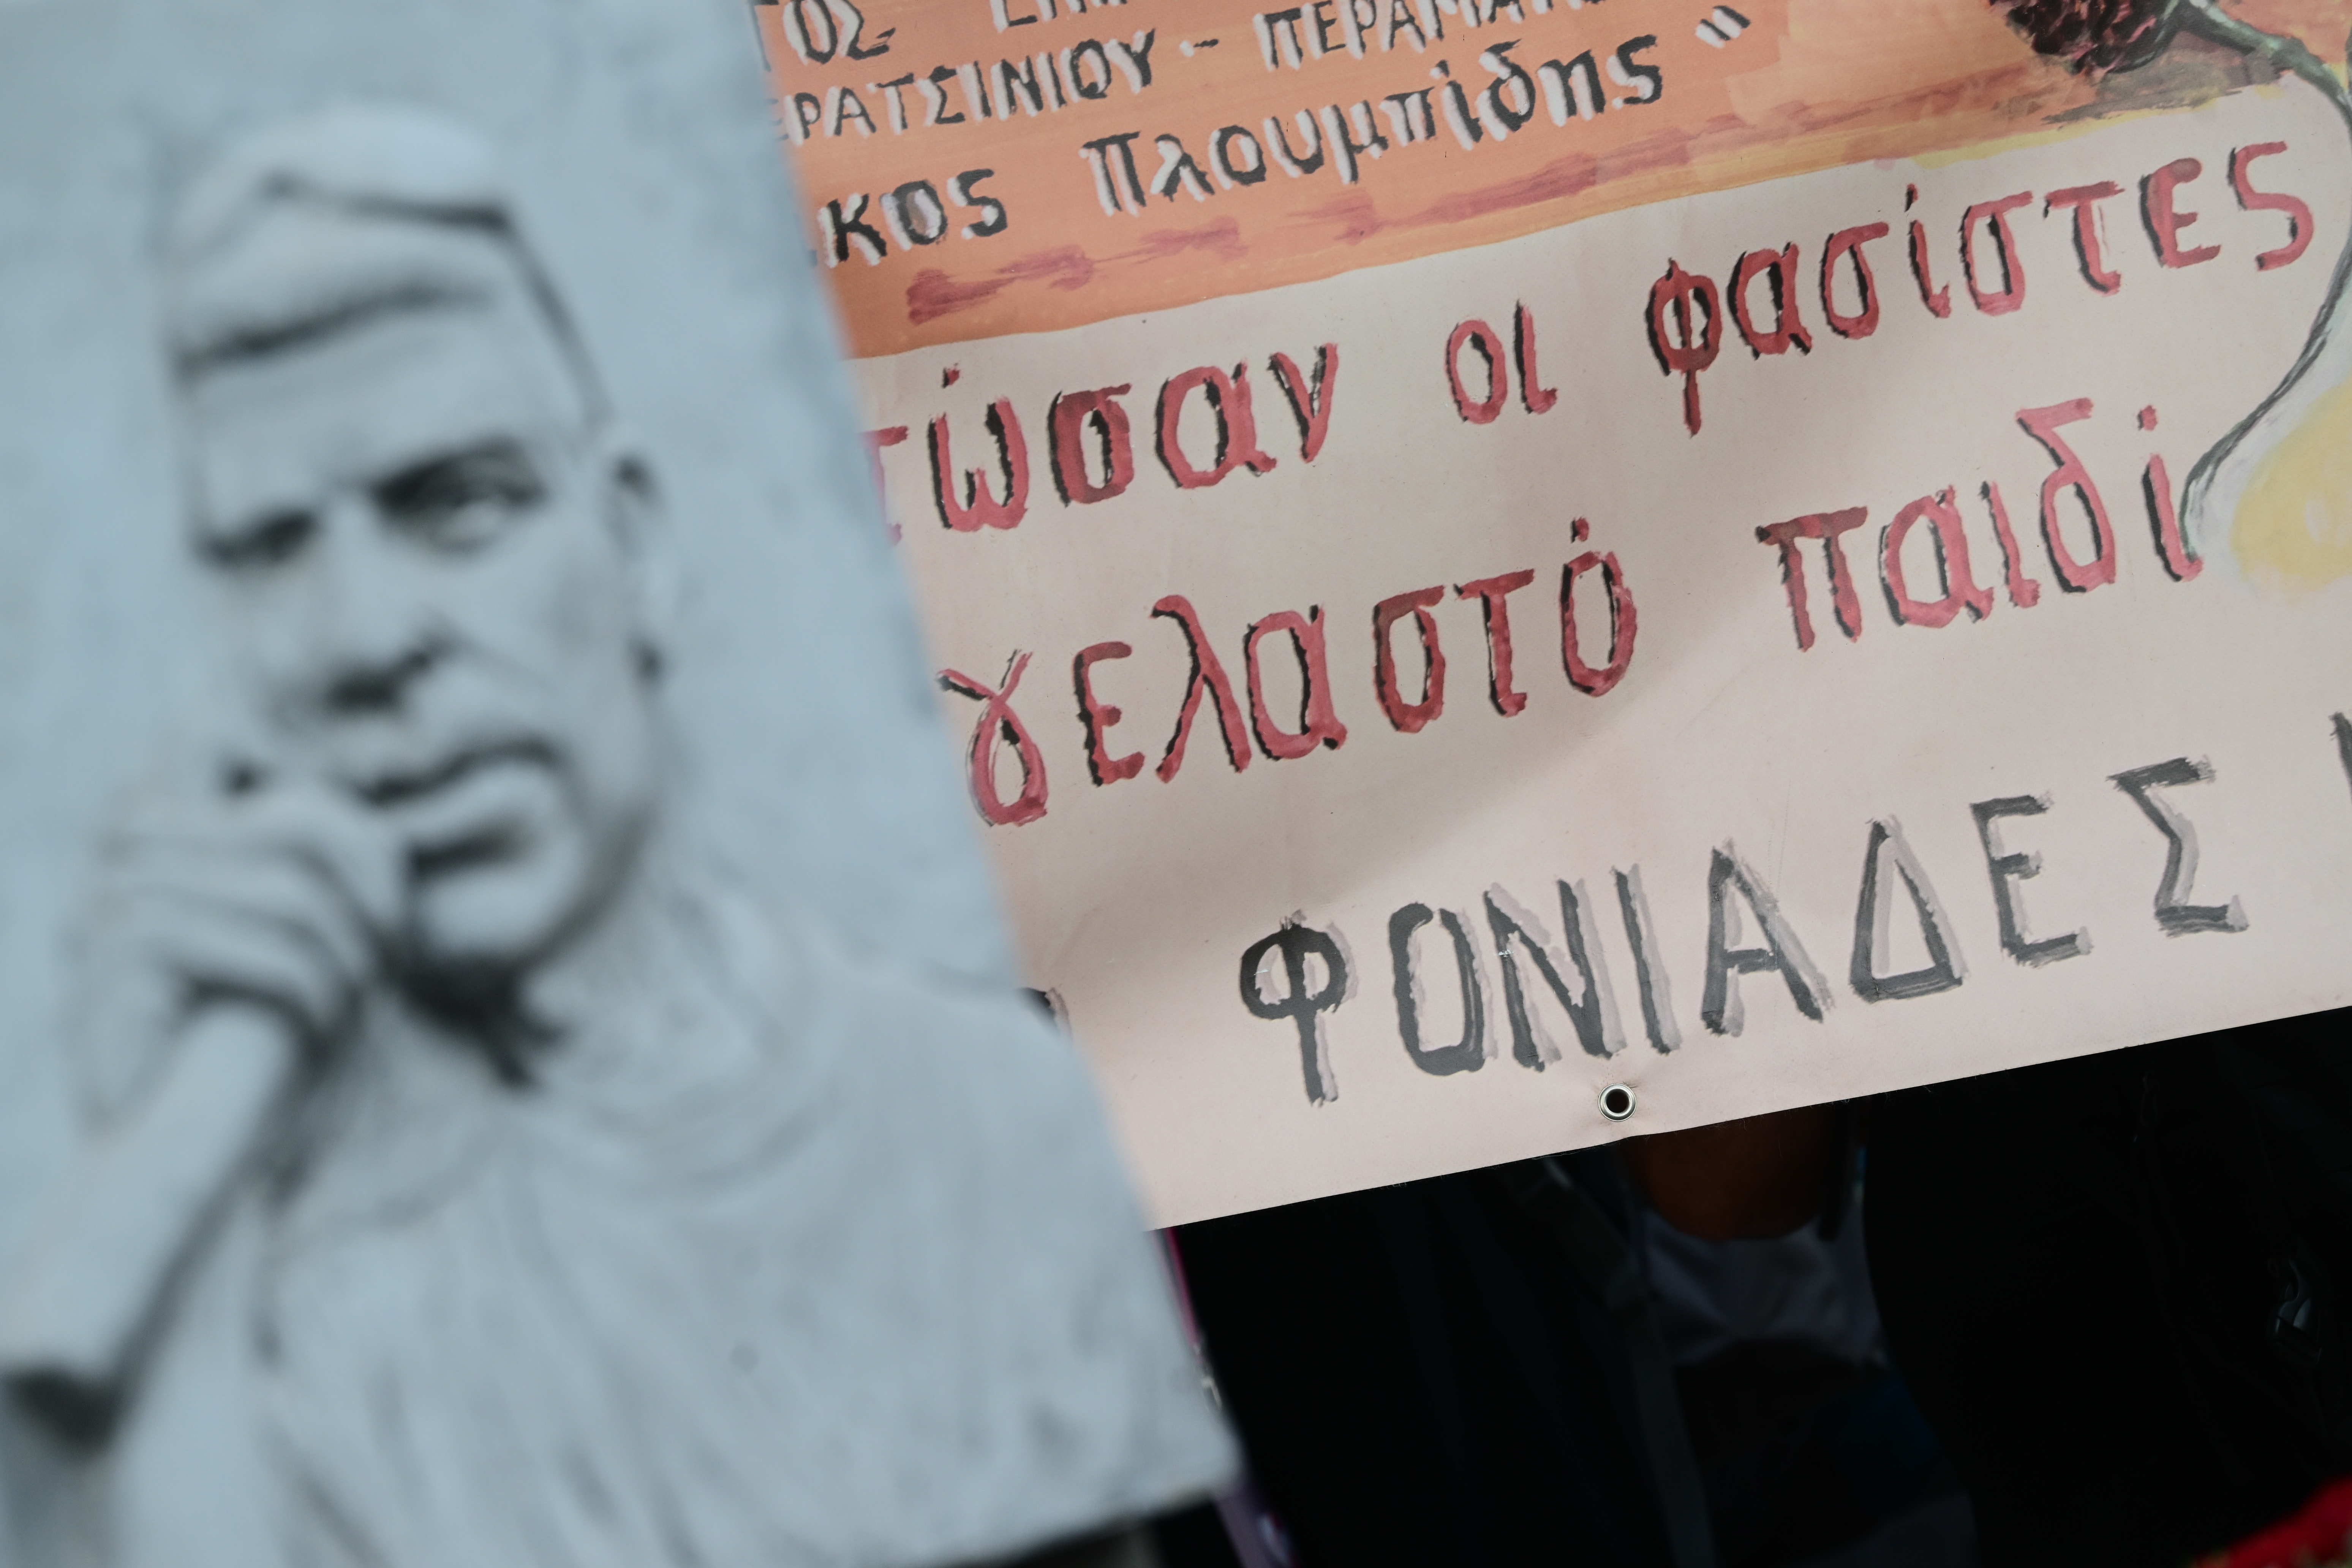 ΤΟΣ
ΕΡΑΤΣΙΝΙΟΥ - ΠΕΡΑΜΑΤΟ
ΙΚΟς Πλουμπίδης"
τώσαν οι φασίστες
γελαστό παιδί
ΦΟΝΙΑΔΕΣ